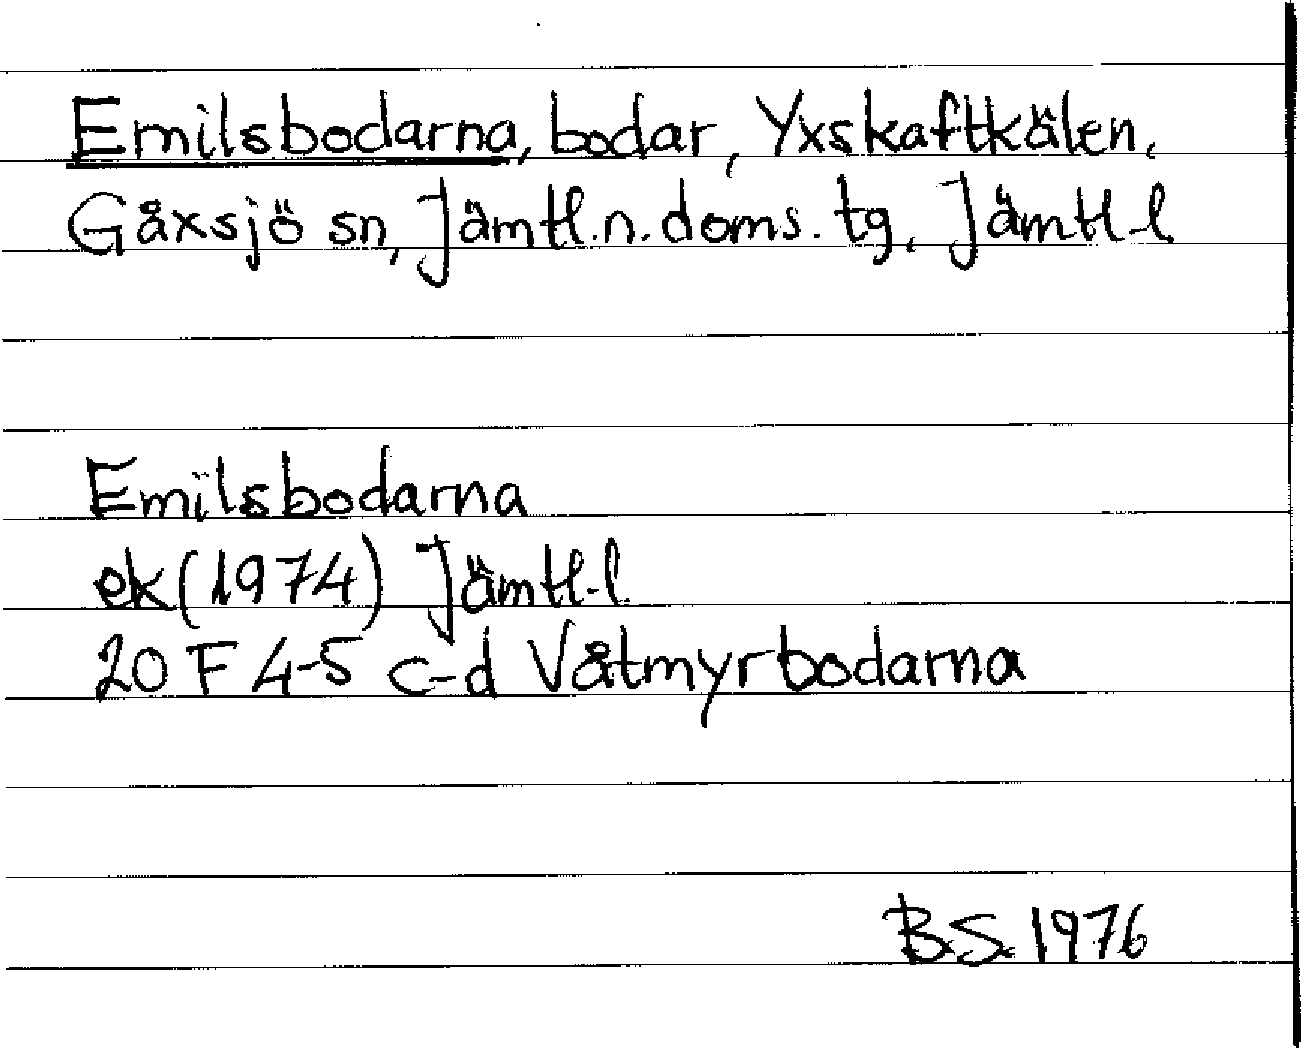 Emilsbodarna, bodar, Yxskaftkälen,
Gåxsjö sn, Jämtl.n.doms.tg, Jämtl-l
Emilsbodarna
ek (1974) Jämtl-l
20 F 4-5 c-d Våtmyrbodarna
B.S. 1976